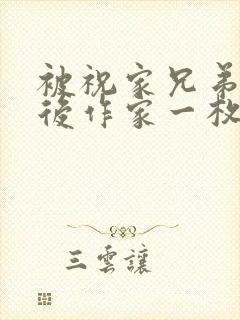 被祝家兄弟
後作家一枚
三雲讓